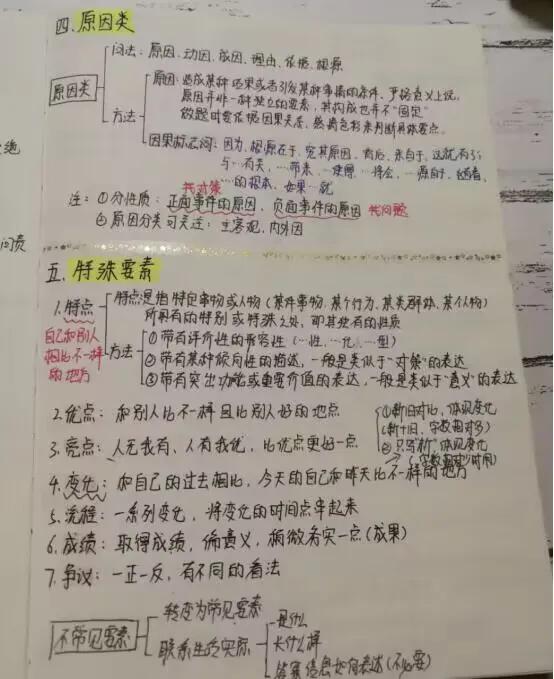 四. 原因类
问法: 原因、动因、成因、理由、依据、根源
原因类
原因: 造成某种结果或者引发某种事情的条件。严格意义上说,
原因并非一种独立的要素,其构成也并不"固定"
方法
做题时要依据因果关系、感情色彩来判断具体要点。
因果标志词: 因为、根源在于、究其原因、背后、来自于、这就有了、
与…有关、…带来、…使得、…将会、…源自于、
…的根本、如果…就
找对策
注: ①分性质: 正面事件的原因、负面事件的原因 找问题
②原因分类可关注: 主客观、内外因
五. 特殊要素
1. 特点
自己和别人
相比不一样
的地方
特点是指特定事物或人物(某件事物、某个行为、某类群体、某个人物)
所具有的特别或特殊之处,即其独有的性质
方法
①带有评价性的形容性(…性、…化、…型)
②带有某种倾向性的描述,一般是类似于"对策"的表达
③带有突出功能或重要价值的表达,一般是类似于"意义"的表达
2. 优点: 和别人比不一样且比别人好的地点
①新旧对比,体现变化
(新+旧,字数相对多)
3. 亮点: 人无我有、人有我优,比优点更好一点
②只写"新",体现变化
(字数相对少时用)
4. 变化: 和自己的过去相比,今天的自己和昨天比不一样的地方
5. 流程: 一系列变化,将变化的时间点串起来
6. 成绩: 取得成绩,偏意义,稍微务实一点(成果)
7. 争议: 一正一反,有不同的看法
不常见要素
转变为常见要素
联系生活实际
是什么
长什么样
答案信息如何表达(不必要)
绝
问责